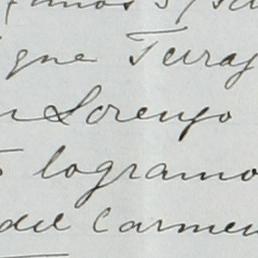 gne Terraj
n Lorenzo
logramo
del Carmen